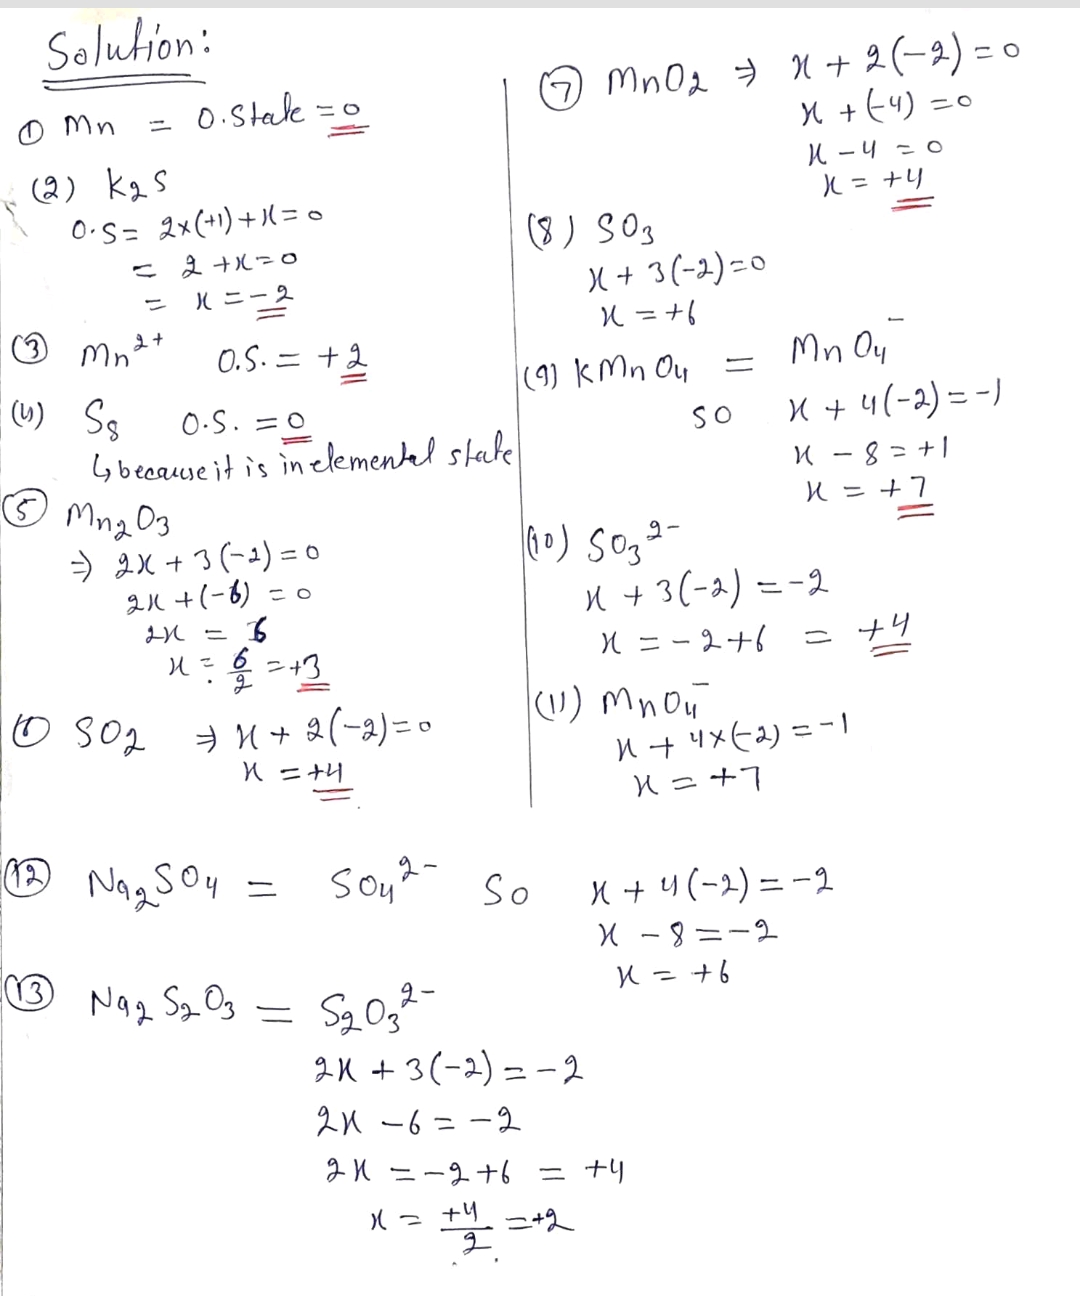 Solution:
① Mn = O.State = 0
(2) K₂S
O.S = 2x(+1) + x = 0
= 2 + x = 0
= x = -2
③ Mn²⁺ O.S. = +2
(4) S₈ O.S. = 0
↳ because it is in elemental state
⑤ Mn₂O₃
⇒ 2x + 3(-2) = 0
2x + (-6) = 0
2x = 6
x = 6/2 = +3
SO₂ ⇒ x + 2(-2) = 0
x = +4
⑦ MnO₂ ⇒ x + 2(-2) = 0
x + (-4) = 0
x - 4 = 0
x = +4
(8) SO₃
x + 3(-2) = 0
x = +6
(9) KMnO₄ = MnO₄⁻
so x + 4(-2) = -1
x - 8 = +1
x = +7
(10) SO₃²⁻
x + 3(-2) = -2
x = -2+6 = +4
(11) MnO₄⁻
x + 4x(-2) = -1
x = +7
⑫ Na₂SO₄ = SO₄²⁻ So x + 4(-2) = -2
x - 8 = -2
x = +6
⑬ Na₂S₂O₃ = S₂O₃²⁻
2x + 3(-2) = -2
2x - 6 = -2
2x = -2+6 = +4
x = +4/2 = +2